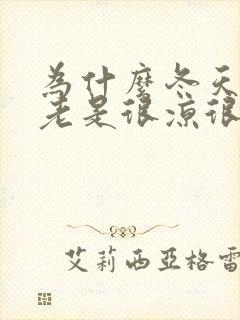 為什麼冬天
老是很涼很
艾莉西亞格雷